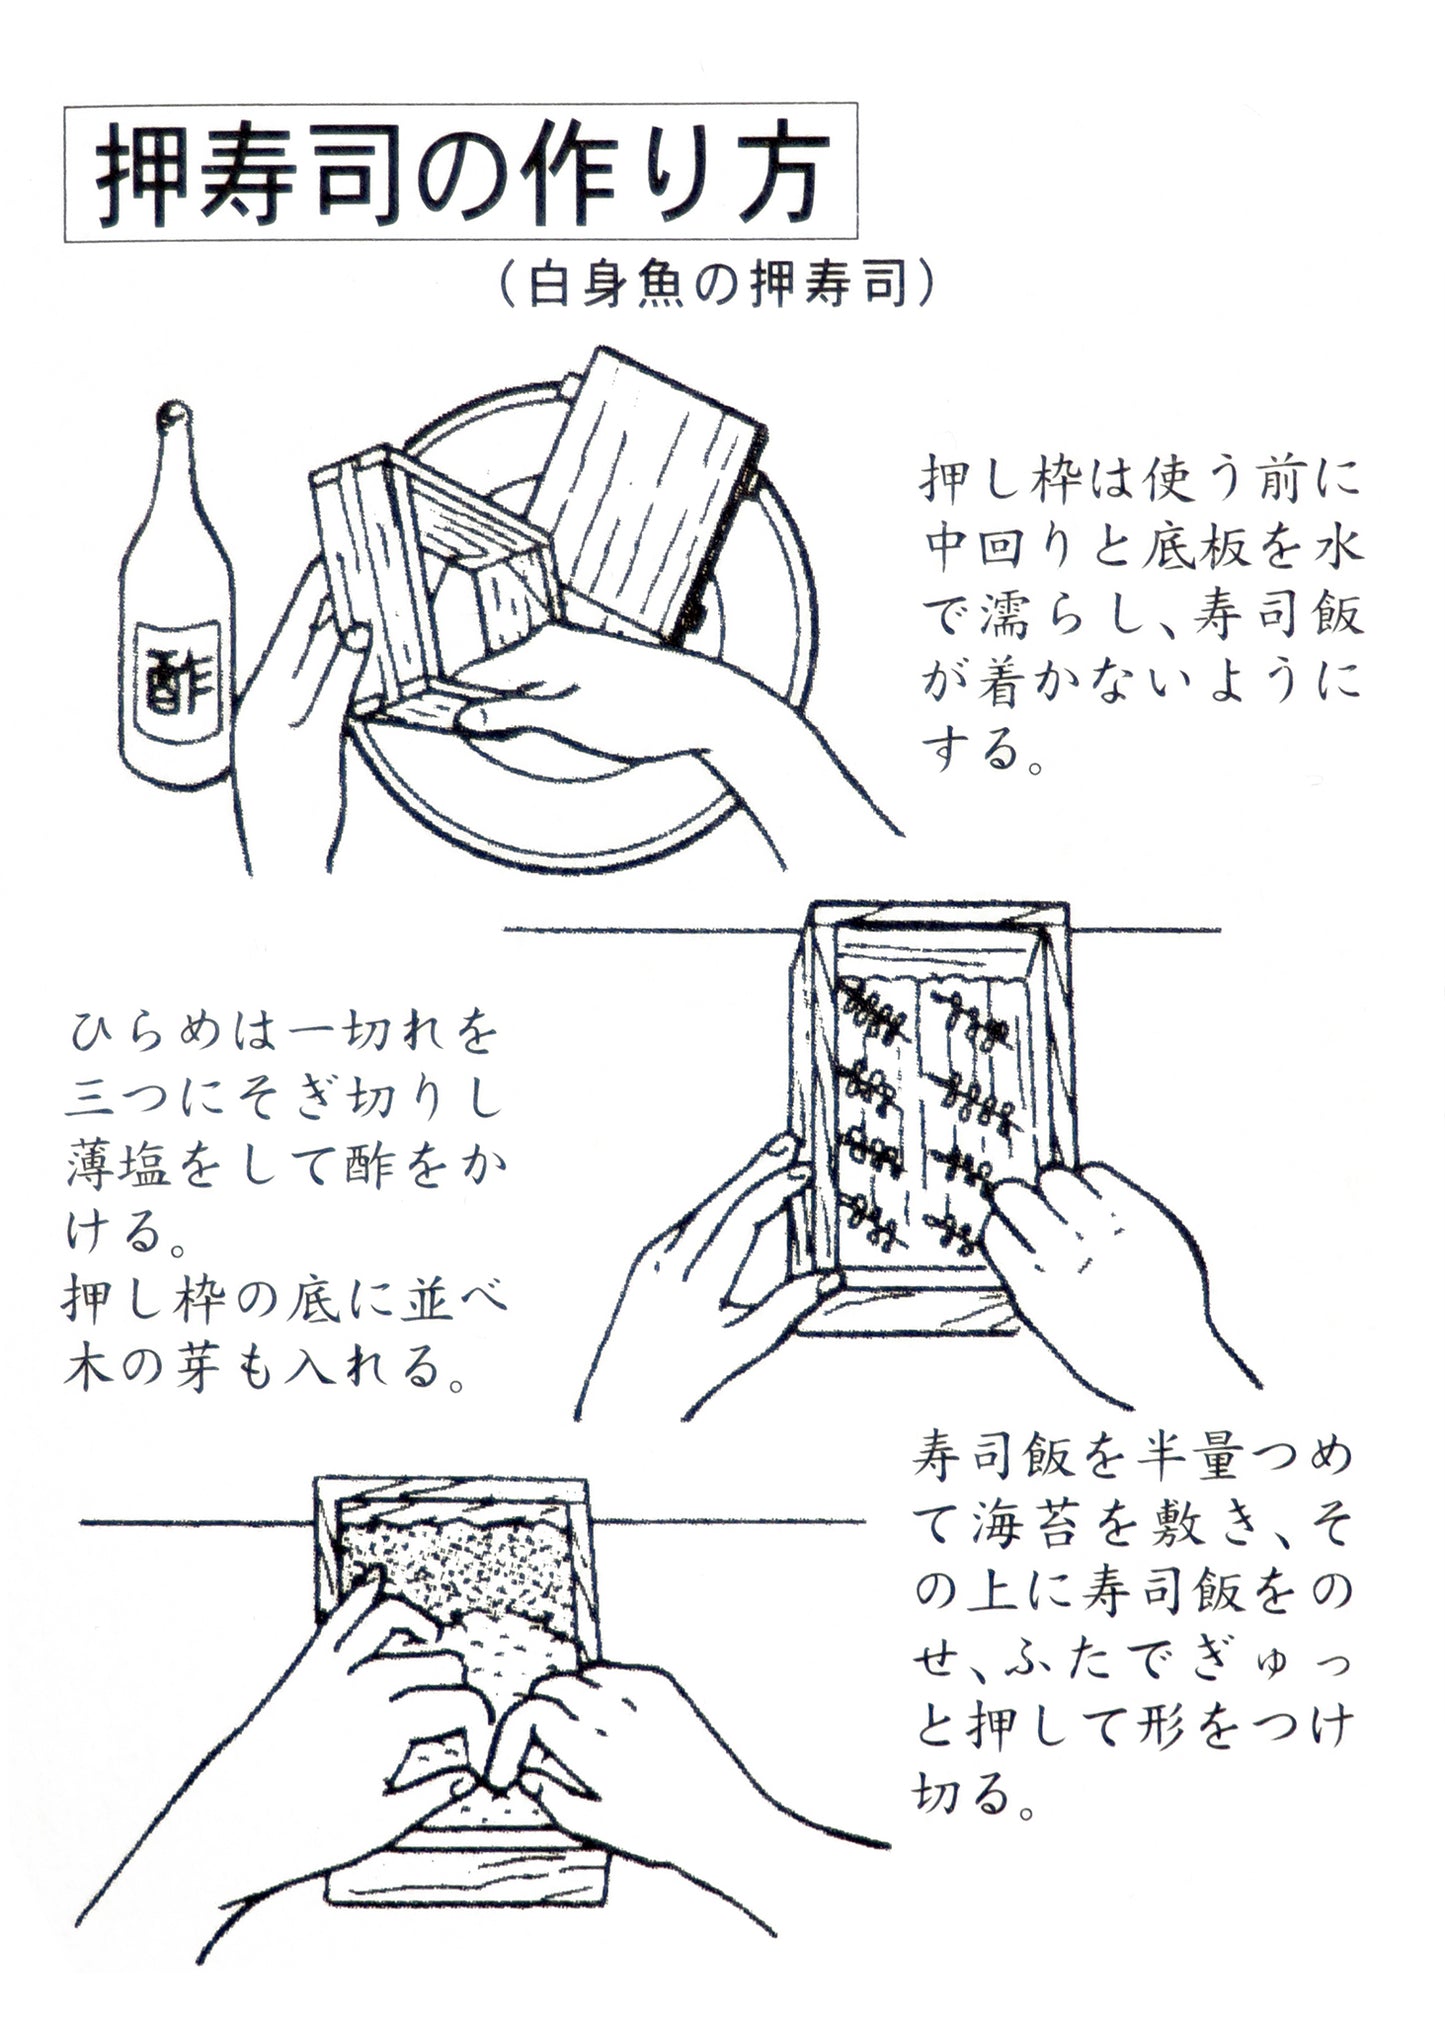 押寿司の作り方
（白身魚の押寿司）
酢
押し枠は使う前に
中回りと底板を水
で濡らし、寿司飯
が着かないように
する。
ひらめは一切れを
三つにそぎ切りし
薄塩をして酢をか
ける。
押し枠の底に並べ
木の芽も入れる。
寿司飯を半量つめ
て海苔を敷き、そ
の上に寿司飯をの
せ、ふたでぎゅっ
と押して形をつけ
切る。